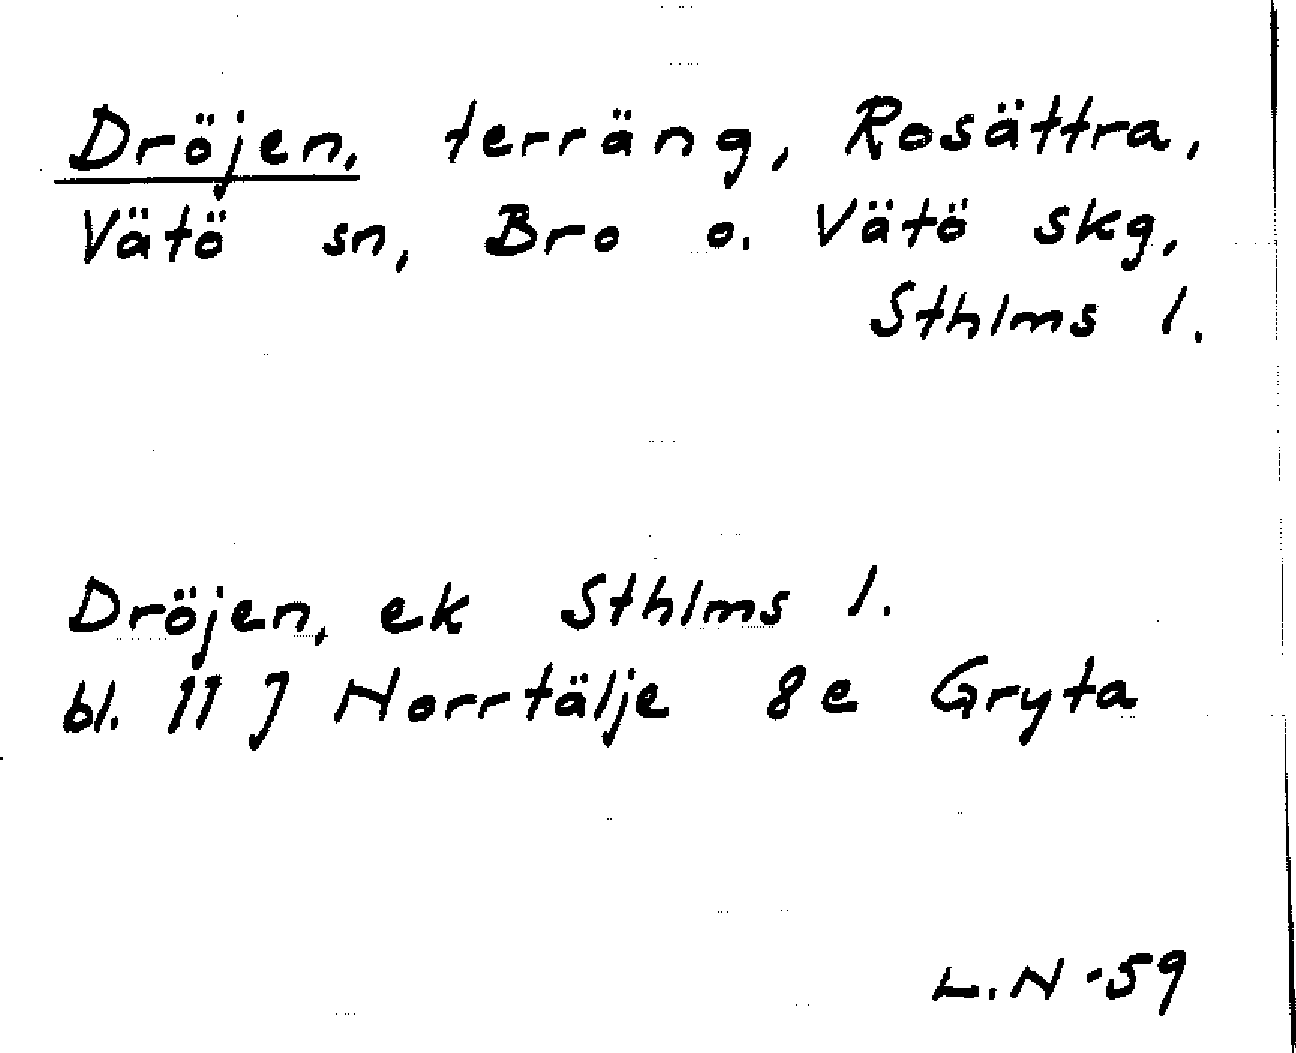 Dröjen, terräng, Rosättra,
Vätö sn, Bro o. Vätö skg,
Sthlms l.
Dröjen, ek Sthlms l.
bl. 11 J Norrtälje 8e Gryta
L.N -59